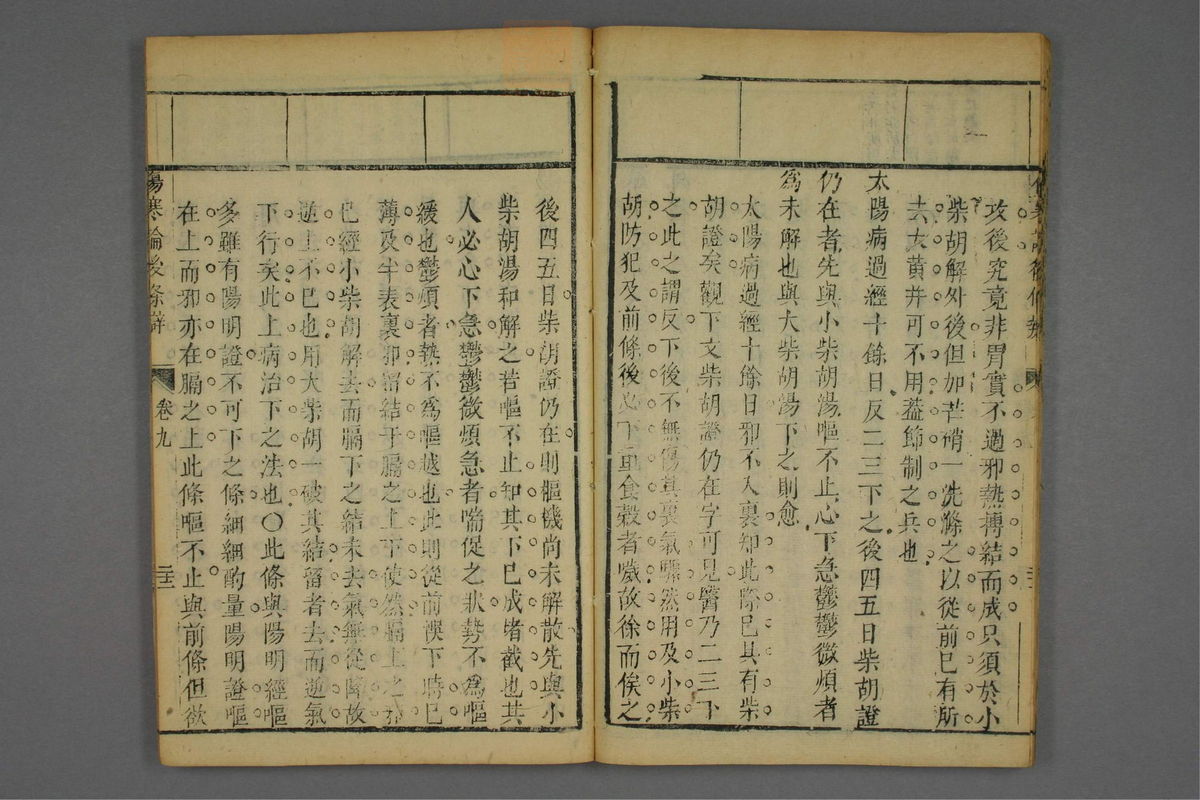 攻後究竟非胃實不過邪熱摶結而成只須於小
柴胡解外後但加芒硝一洗滌之以從前已有所
去大黃并可不用葢節制之兵也
太陽病過經十餘日反二三下之後四五日柴胡證
仍在者先與小柴胡湯嘔不止心下急鬱鬱微煩者
為未解也與大柴胡湯下之則愈
太陽病過經十餘日邪不入裏知此際已具有柴
胡證矣觀下文柴胡證仍在字可見醫乃二三下
之此之謂反下後不無傷其裏氣驟然用及小柴
胡防犯及前條後必下重食穀者噦故徐而俟之
後四五日柴胡證仍在則樞機尚未解散先與小
柴胡湯和解之若嘔不止知其下已成堵截也其
人必心下急鬱鬱微煩急者喘促之狀勢不為嘔
緩也鬱煩者熱不為嘔越也此則從前誤下時已
薄及半表裏邪留結于膈之上下使然膈上之邪
已經小柴胡解去而膈下之結未去氣無從降故
逆上不已也用大柴胡一破其結留者去而逆氣
下行矣此上病治下之法也〇此條與陽明經嘔
多雖有陽明證不可下之條細細酌量陽明證嘔
在上而邪亦在膈之上此條嘔不止與前條但欲
傷寒論後條辯
卷九
二十三